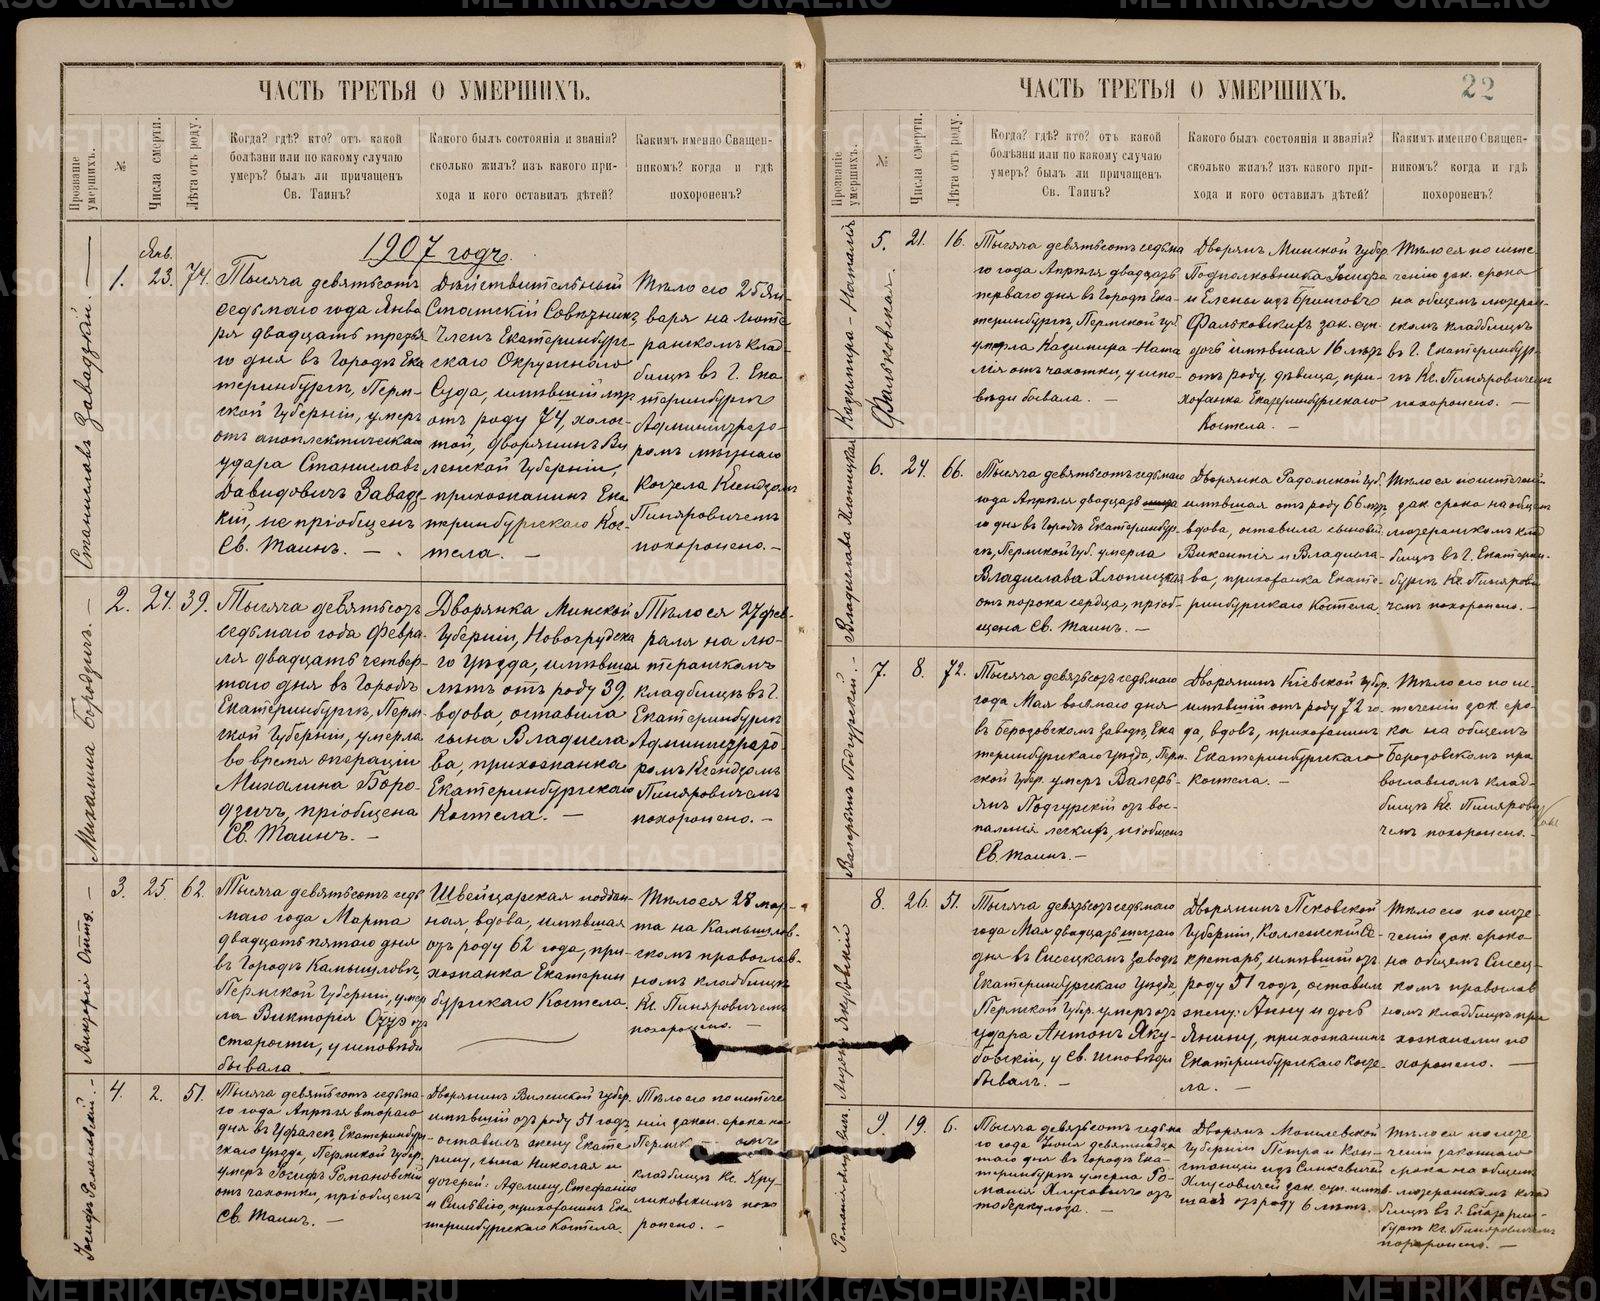 ЧАСТЬ ТРЕТЬЯ О УМЕРШИХЪ.
Прозваніе умершихъ.
№
Числа смерти.
Лѣта отъ роду.
Когда? гдѣ? кто? отъ какой
болѣзни или по какому случаю
умеръ? былъ ли причащенъ
Св. Таинъ?
Какого былъ состоянія и званія?
сколько жилъ? изъ какого при-
хода и кого оставилъ дѣтей?
Какимъ именно Священ-
никомъ? когда и гдѣ
похороненъ?
1907 годъ.
Станиславъ Завадзкій.
1.
Янв.
23.
74.
Тысяча девятьсотъ
седьмаго года Янва
ря двадцать третья
го дня въ Городѣ Ека
теринбургѣ, Перм-
ской Губерніи, умеръ
отъ апоплектическаго
удара Станиславъ
Давидовичъ Завадз-
кій, не пріобщенъ
Св. Таинъ. —
Дѣйствительный
Статскій Совѣтникъ,
Членъ Екатеринбург-
скаго Окружнаго
Суда, имѣвшій лѣтъ
отъ роду 74, холос-
той, дворянинъ Ви
ленской Губерніи,
прихожанинъ Ека
теринбургскаго Кос-
тела. —
Тѣло его 25 Ян-
варя на люте
ранскомъ клад-
бищѣ въ Г. Ека
теринбургѣ
Администрато-
ромъ мѣстнаго
Костела Ксендзомъ
Пиняровичемъ
похоронено. —
Михалина Бородзичъ. —
2.
24.
39.
Тысяча девятьсотъ
седьмаго года Февра-
ля двадцать четвер-
таго дня въ Городѣ
Екатеринбургѣ, Перм-
ской Губерніи, умерла
во время операціи
Михалина Боро-
дзичъ, пріобщена
Св. Таинъ. —
Дворянка Минской
Губерніи, Новогрудска
го Уѣзда, имѣвшая
лѣтъ отъ роду 39,
вдова, оставила
сына Владисла
ва, прихожанка
Екатеринбургскаго
Костела. —
Тѣло ея 27 фев-
раля на лю-
теранскомъ
кладбищѣ въ Г.
Екатеринбургѣ
Администрато-
ромъ Ксендзомъ
Пиняровичемъ
похоронено. —
Викторія Оттъ. —
3.
25
62.
Тысяча девятьсотъ седь
маго года Марта
двадцать пятаго дня
въ Городѣ Камышловѣ,
Пермской Губерніи, умер
ла Викторія Оттъ отъ
старости, у исповѣди
бывала. —
Швейцарская поддан-
ная, вдова, имѣвшая
отъ роду 62 года, при-
хожанка Екатерин
бургскаго Костела.
Тѣло ея 28 мар-
та на Камышлов-
скомъ православ-
номъ кладбищѣ
Кс. Пиняровичемъ
похоронено. —
Іосифъ Романовскій. —
4.
2.
51.
Тысяча девятьсотъ седьма-
го года Апрѣля втораго
дня въ Уфалеѣ, Екатеринбург-
скаго уѣзда, Пермской Губер.
умеръ Іосифъ Романовскій
отъ чахотки, пріобщенъ
Св. Таинъ. —
Дворянинъ Виленской Губер.
имѣвшій отъ роду 51 годъ,
оставилъ жену Екате
рину, сына Николая и
дочерей: Аделину, Стефанію
и Сильвію, прихожанинъ Ека
теринбургскаго Костела.
Тѣло его по истече
ніи закон. срока на
Пермск
кладбищѣ Кс.
похо
ронено. —
ЧАСТЬ ТРЕТЬЯ О УМЕРШИХЪ.
22
Прозваніе умершихъ.
№
Числа смерти.
Лѣта отъ роду.
Когда? гдѣ? кто? отъ какой
болѣзни или по какому случаю
умеръ? былъ ли причащенъ
Св. Таинъ?
Какого былъ состоянія и званія?
сколько жилъ? изъ какого при-
хода и кого оставилъ дѣтей?
Какимъ именно Священ-
никомъ? когда и гдѣ
похороненъ?
Казимира-Наталія
Фальковская.
5.
21.
16.
Тысяча девятьсотъ седьма
го года Апрѣля двадцать
перваго дня въ Городѣ Ека-
теринбургѣ, Пермской Губ.
умерла Казимира-Ната
лія отъ чахотки, у испо-
вѣди бывала. —
Дворянъ Минской Губер
Подполковника Іосифа
и Елены изъ
Фальковскихъ зак. суп.
дочь имѣвшая 16 лѣтъ
отъ роду, дѣвица, при-
хожанка Екатеринбургскаго
Костела. —
Тѣло ея по исте
ченію зак. срока
на общемъ лютеран-
скомъ кладбищѣ
въ Г. Екатеринбур-
гѣ Кс. Пиняровичемъ
похоронено. —
Владислава Хлопицкая
6.
24.
66.
Тысяча девятьсотъ седьмаго
года Апрѣля двадцать
го дня въ Городѣ Екатеринбур-
гѣ, Пермской Губ. умерла
Владислава Хлопицкая
отъ порока сердца, пріоб-
щена Св. Таинъ. —
Дворянка Радомской Губ.
имѣвшая отъ роду 66 лѣтъ,
вдова, оставила сыновей
Викентія и Владисла-
ва, прихожанка Екате-
ринбургскаго Костела.
Тѣло ея по истеченіи
зак. срока на общемъ
лютеранскомъ клад
бищѣ въ Г. Екатерин-
бургѣ Кс. Пинярови
чемъ похоронено. —
Валерьянъ Подгурскій. —
7.
8.
72.
Тысяча девятьсотъ седьмаго
года Мая восьмаго дня
въ Березовскомъ Заводѣ, Ека
теринбургскаго Уѣзда, Перм-
ской Губер. умеръ Валерь-
янъ Подгурскій отъ вос-
паленія легкихъ, пріобщенъ
Св. Таинъ. —
Дворянинъ Кіевской Губер.
имѣвшій отъ роду 72 го-
да, вдовъ, прихожанинъ
Екатеринбургскаго
Костела. —
Тѣло его по ис-
теченіи зак. сро-
ка на общемъ
Березовскомъ пра
вославномъ клад-
бищѣ Кс. Пинярови
чемъ похоронено. —
Антонъ Якубовскій
8.
26.
51.
Тысяча девятьсотъ седьмаго
года Мая двадцать шестаго
дня въ Сысецкомъ Заводѣ
Екатеринбургскаго Уѣзда,
Пермской Губер. умеръ отъ
удара Антонъ Яку-
бовскій, у Св. Исповѣди
бывалъ. —
Дворянинъ Псковской
Губерніи, Коллежскій Се-
кретарь, имѣвшій отъ
роду 51 годъ, оставилъ
жену: Анну и дочь
Янину, прихожанинъ
Екатеринбургскаго Косте-
ла. —
Тѣло его по исте-
ченіи зак. срока
на общемъ Сысец-
комъ православ
номъ кладбищѣ при
хожанами по
хоронено. —
9.
19.
6.
Тысяча девятьсотъ седьма
го года Іюня девятнадца
таго дня въ Городѣ Ека-
теринбургѣ умерла Ро-
манія Хлусовичъ отъ
тоберкулоза. —
Дворянъ Могилевской
Губерніи Петра и Кон-
станціи изъ
Хлусовичей зак. суп. имѣв-
шая отъ роду 6 лѣтъ.
Тѣло ея по исте
ченіи законнаго
срока на общемъ
лютеранскомъ клад
бищѣ въ Г. Екатерин-
бургѣ Кс. Пиняровичемъ
похоронено. —
METRIKI.GASO-URAL.RU